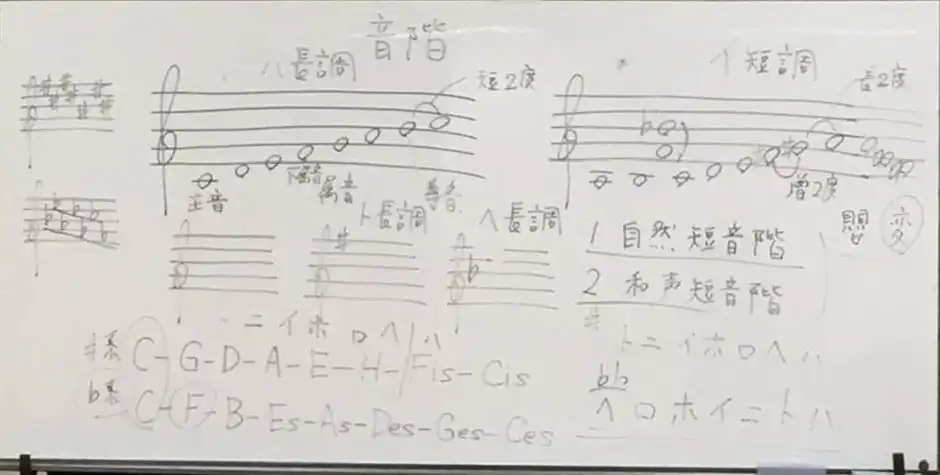 音階
ハ長調
短2度
イ短調
長2度
主音
下属音
属音
導音
増2度
ト長調
ヘ長調
1 自然短音階
2 和声短音階
変
ニ イ ホ ロ ヘ ハ
#系 C-G-D-A-E-H-Fis-Cis
♭系 C-F-B-Es-As-Des-Ges-Ces
# ト ニ イ ホ ロ ヘ ハ
♭♭
ヘ ロ ホ イ ニ ト ハ